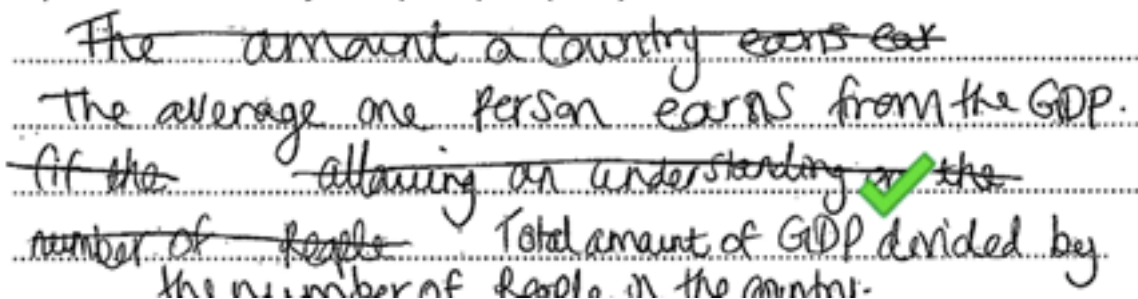 The amount a Country earns ear
The average one Person earns from the GDP.
(if the allowing an understanding on the
number of People Total amount of GDP divided by
the number of People in the country.